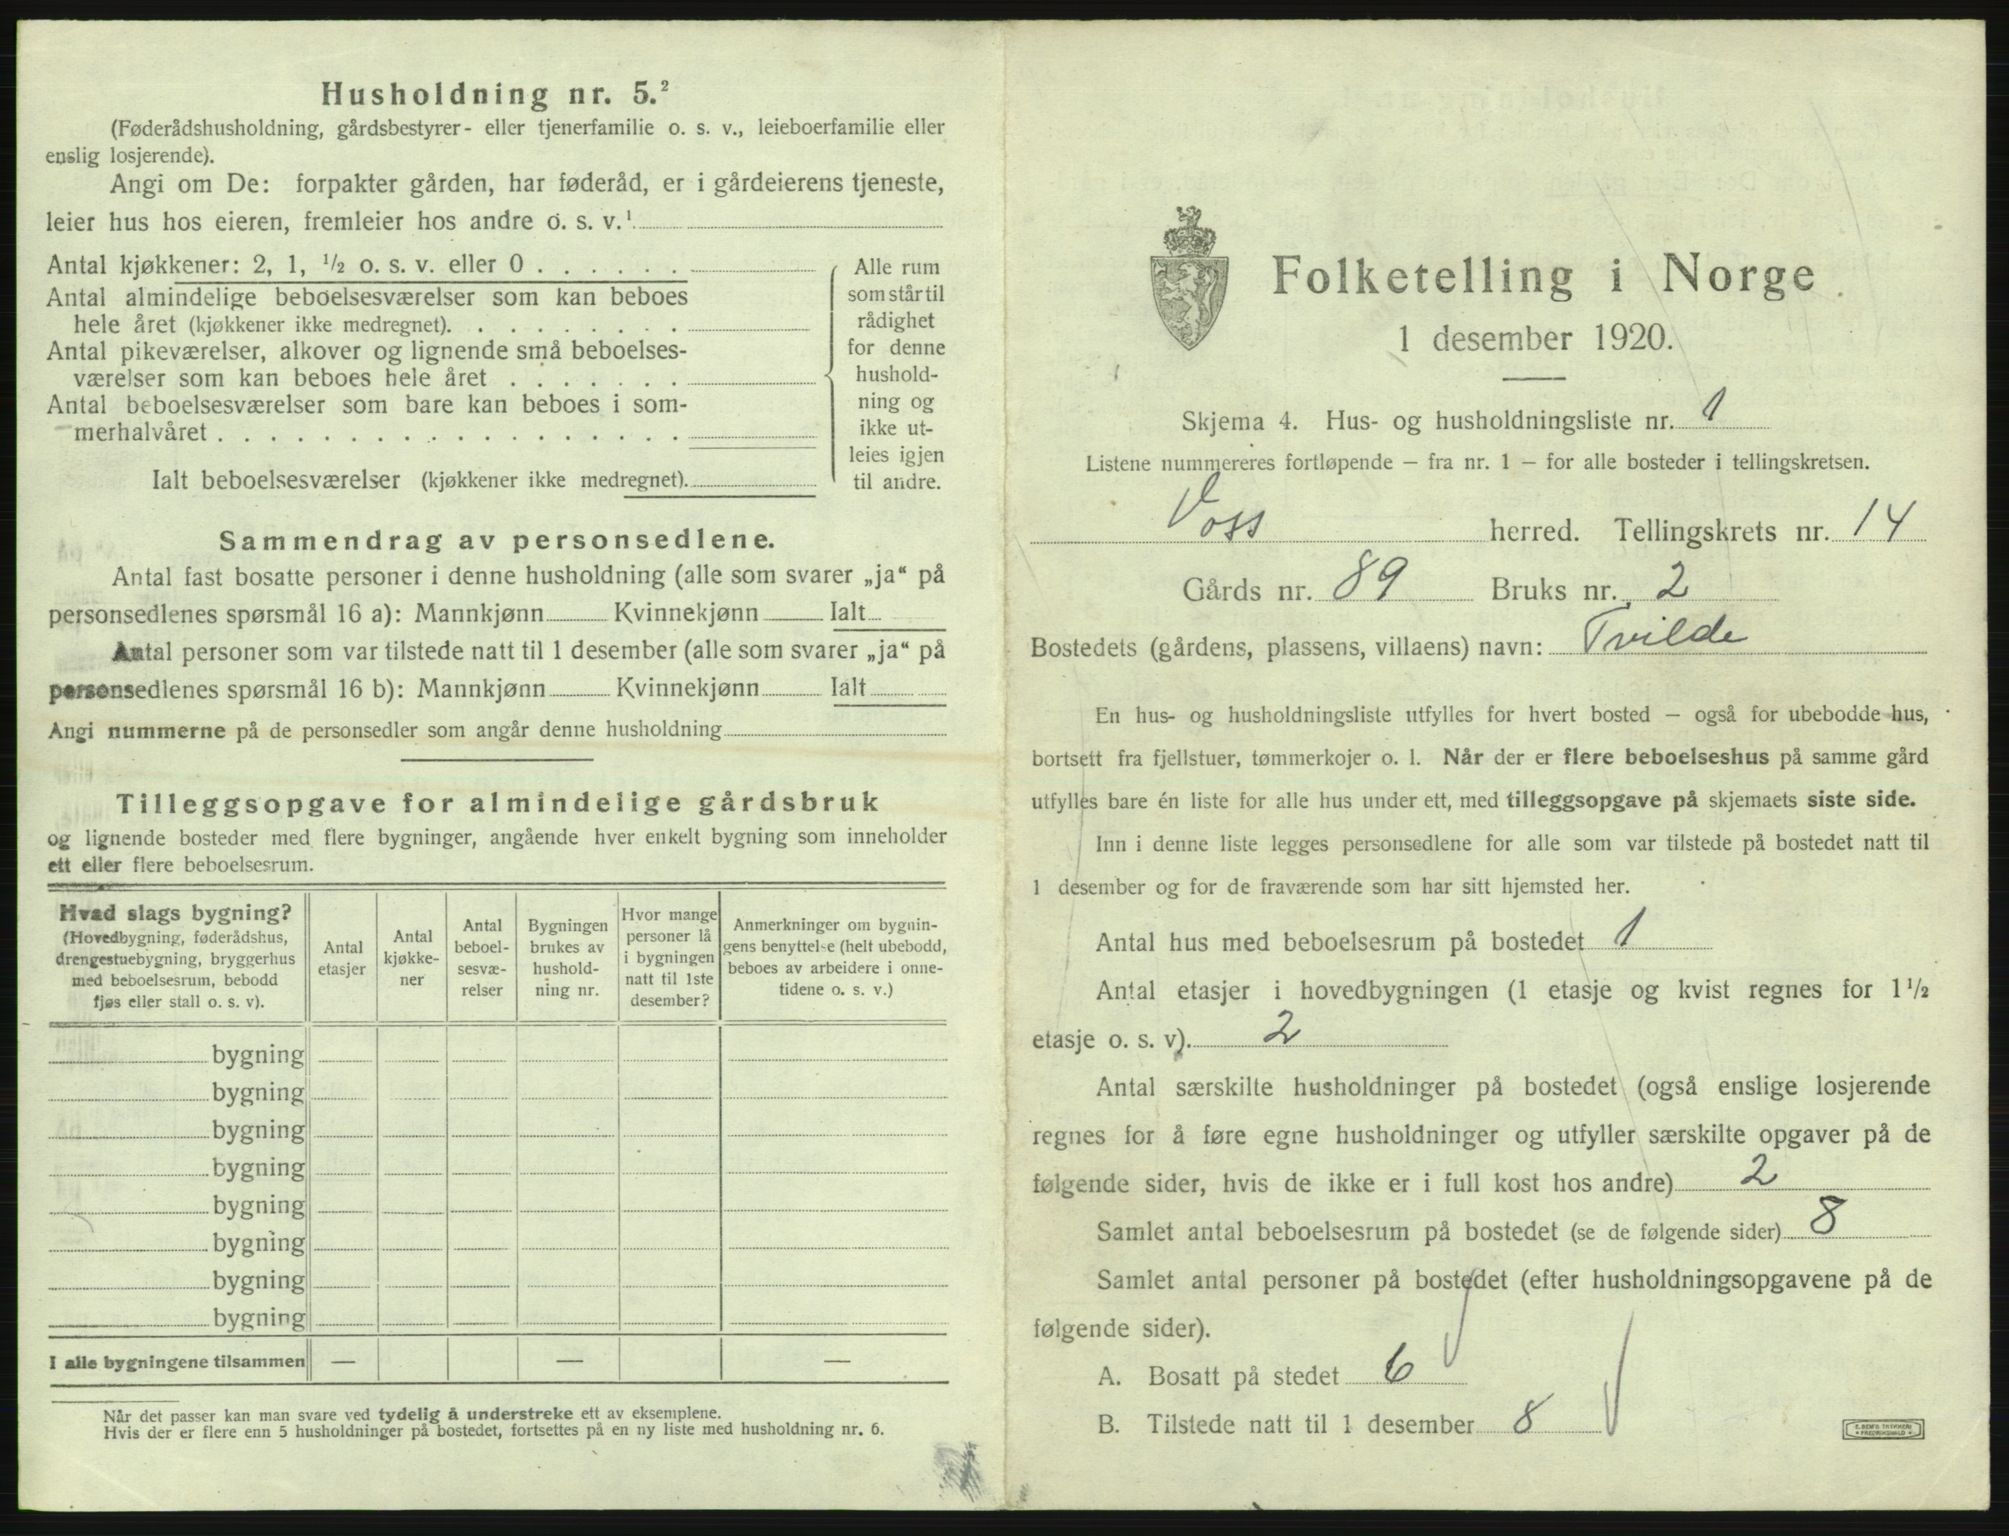 Husholdning nr. 5.²
(Føderådshusholdning, gårdsbestyrer- eller tjenerfamilie o. s. v., leieboerfamilie eller
enslig losjerende).
Angi om De: forpakter gården, har føderåd, er i gårdeierens tjeneste,
leier hus hos eieren, fremleier hos andre o. s. v.¹
Antal kjøkkener: 2, 1, ½ o. s. v. eller 0 . . . . . .
Antal almindelige beboelsesværelser som kan beboes
hele året (kjøkkener ikke medregnet). . . . . . . . .
Antal pikeværelser, alkover og lignende små beboelses-
værelser som kan beboes hele året . . . . . . .
Antal beboelsesværelser som bare kan beboes i som-
merhalvåret . . . . . . . . . . . . . . . . . .
Ialt beboelsesværelser (kjøkkener ikke medregnet).
Alle rum
som står til
rådighet
for denne
hushold-
ning og
ikke ut-
leies igjen
til andre.
Sammendrag av personsedlene.
Antal fast bosatte personer i denne husholdning (alle som svarer „ja“ på
personsedlenes spørsmål 16 a): Mannkjønn Kvinnekjønn Ialt
Antal personer som var tilstede natt til 1 desember (alle som svarer „ja“ på
personsedlenes spørsmål 16 b): Mannkjønn Kvinnekjønn Ialt
Angi nummerne på de personsedler som angår denne husholdning
Tilleggsopgave for almindelige gårdsbruk
og lignende bosteder med flere bygninger, angående hver enkelt bygning som inneholder
ett eller flere beboelsesrum.
Hvad slags bygning?
(Hovedbygning, føderådshus,
drengestuebygning, bryggerhus
med beboelsesrum, bebodd
fjøs eller stall o. s. v).
Antal
etasjer
Antal
kjøkke-
ner
Antal
beboel-
sesvæ-
relser
Bygningen
brukes av
hushold-
ning nr.
Hvor mange
personer lå
i bygningen
natt til 1ste
desember?
Anmerkninger om bygnin-
gens benyttelse (helt ubebodd,
beboes av arbeidere i onne-
tidene o. s. v.)
bygning
bygning
bygning
bygning
bygning
bygning
bygning
bygning
I alle bygningene tilsammen — — —
Når det passer kan man svare ved tydelig å understreke ett av eksemplene.
Hvis der er flere enn 5 husholdninger på bostedet, fortsettes på en ny liste med husholdning nr. 6.
Folketelling i Norge
1 desember 1920.
Skjema 4. Hus- og husholdningsliste nr. 1
Listene nummereres fortløpende – fra nr. 1 – for alle bosteder i tellingskretsen.
Voss herred. Tellingskrets nr. 14
Gårds nr. 89 Bruks nr. 2
Bostedets (gårdens, plassens, villaens) navn: Tvilde
En hus- og husholdningsliste utfylles for hvert bosted – også for ubebodde hus,
bortsett fra fjellstuer, tømmerkojer o. l. Når der er flere beboelseshus på samme gård
utfylles bare én liste for alle hus under ett, med tilleggsopgave på skjemaets siste side.
Inn i denne liste legges personsedlene for alle som var tilstede på bostedet natt til
1 desember og for de fraværende som har sitt hjemsted her.
Antal hus med beboelsesrum på bostedet 1
Antal etasjer i hovedbygningen (1 etasje og kvist regnes for 1½
etasje o. s. v). 2
Antal særskilte husholdninger på bostedet (også enslige losjerende
regnes for å føre egne husholdninger og utfyller særskilte opgaver på de
følgende sider, hvis de ikke er i full kost hos andre) 2
Samlet antal beboelsesrum på bostedet (se de følgende sider) 8
Samlet antal personer på bostedet (efter husholdningsopgavene på de
følgende sider).
A. Bosatt på stedet 6
B. Tilstede natt til 1 desember 8